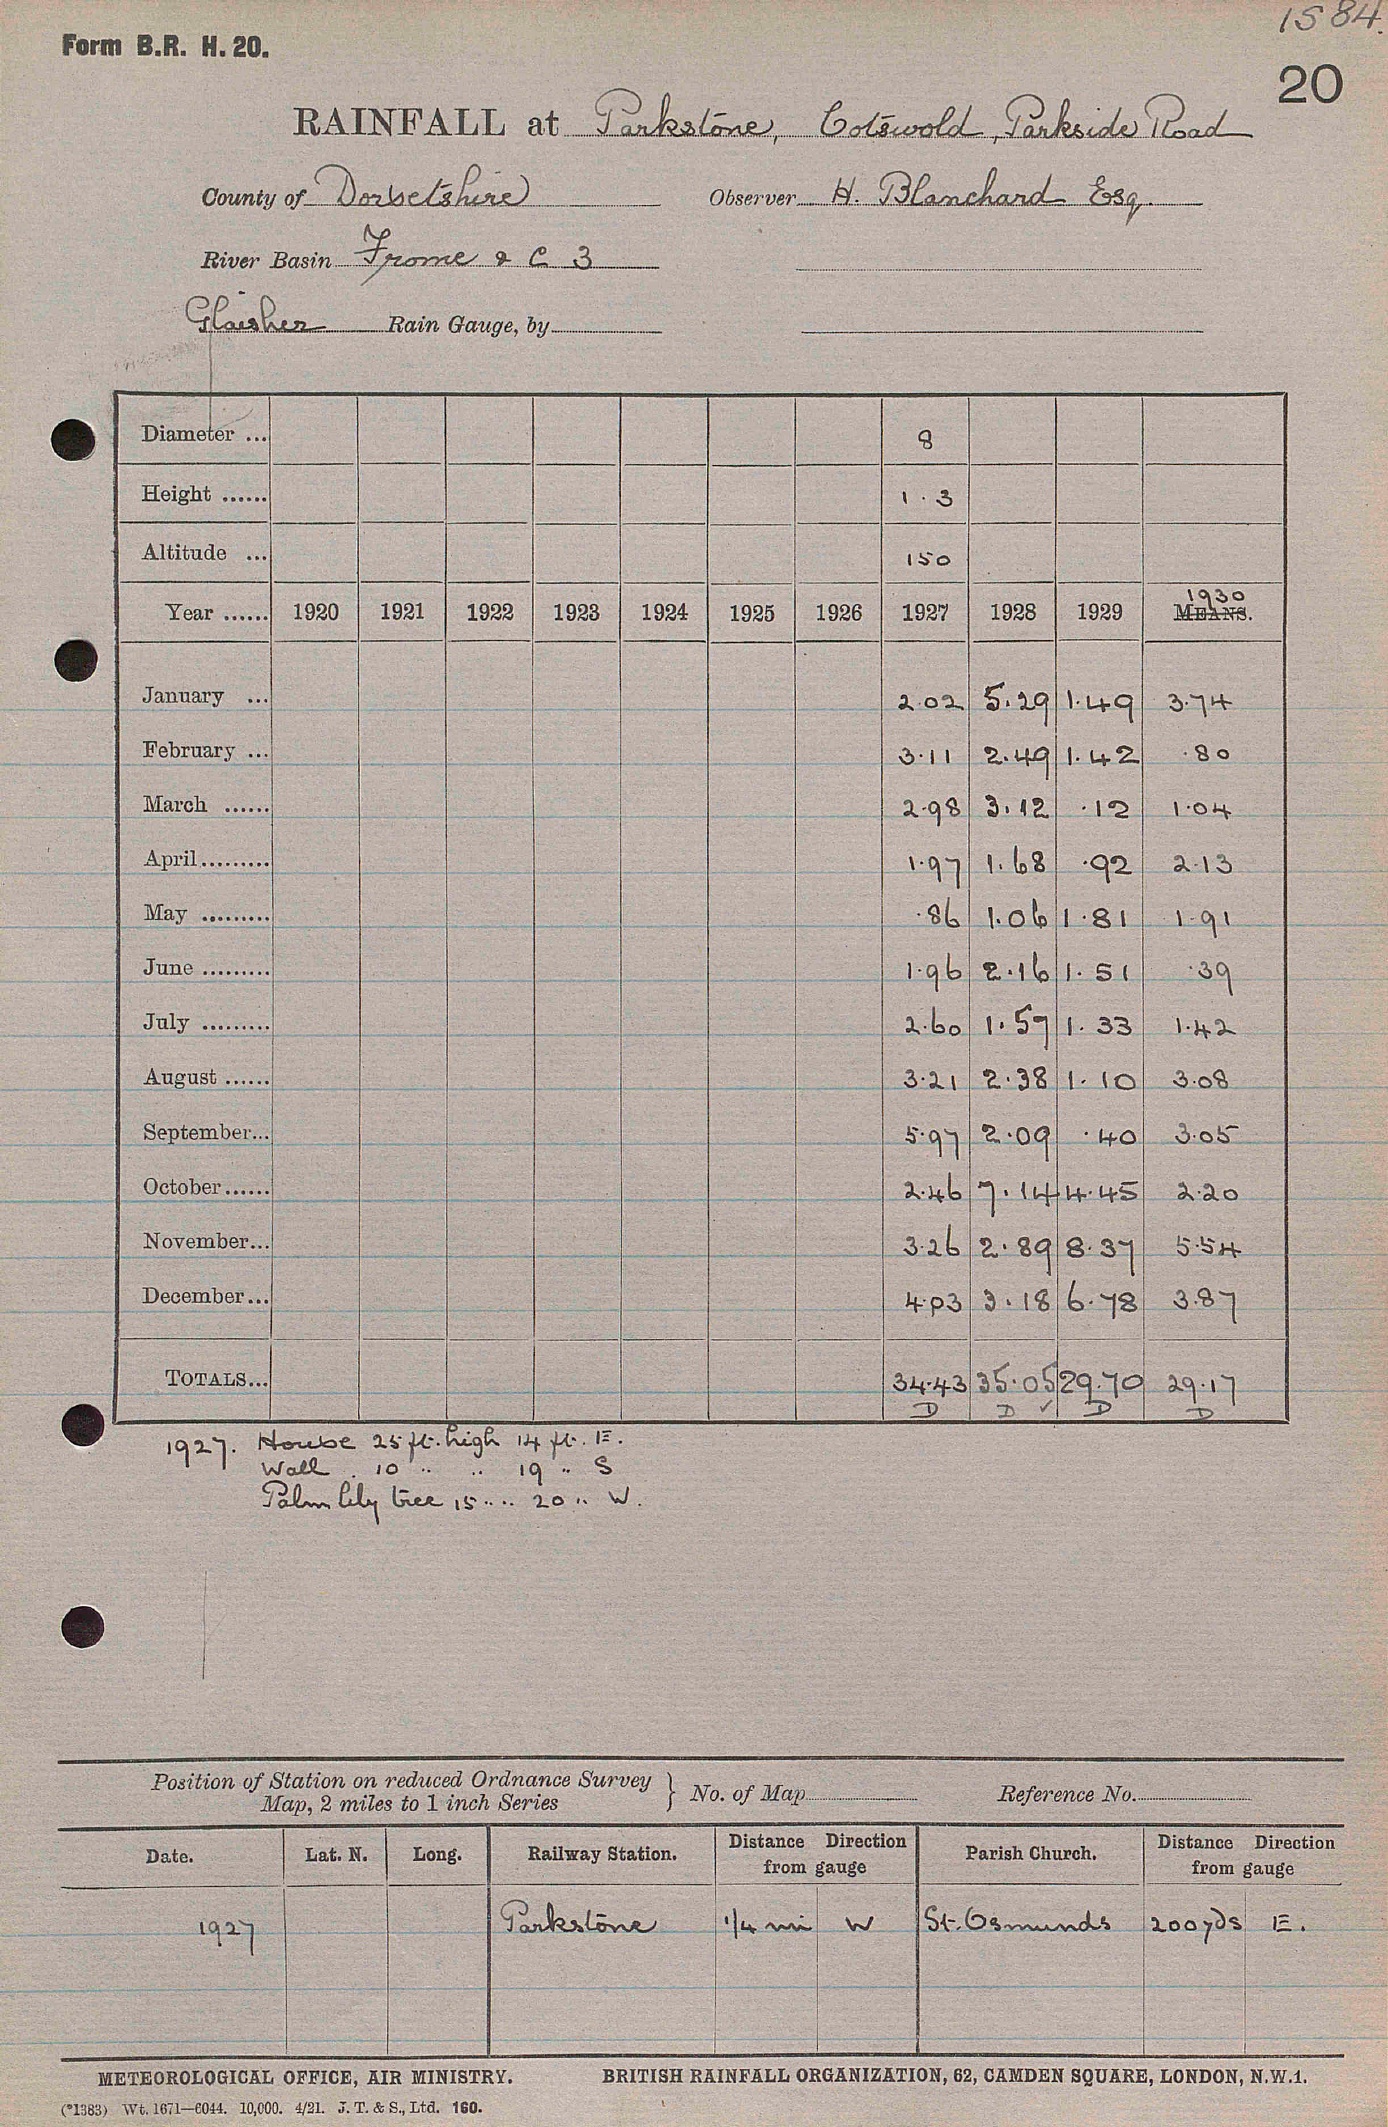 1584.
Form B.R. H. 20.
20
RAINFALL at Parkstone, Cotswold, Parkside Road
County of Dorsetshire Observer H. Blanchard Esq.
River Basin Frome & C 3
Glaisher Rain Gauge, by
Diameter ... 8
Height ...... 1.3
Altitude ... 150
1930
Year ...... 1920 1921 1922 1923 1924 1925 1926 1927 1928 1929 MEANS.
January ... 2.02 5.29 1.49 3.74
February ... 3.11 2.49 1.42 .80
March ...... 2.98 3.12 .12 1.04
April......... 1.97 1.68 .92 2.13
May ......... .86 1.06 1.81 1.91
June ......... 1.96 2.16 1.51 .39
July ......... 2.60 1.57 1.33 1.42
August ...... 3.21 2.38 1.10 3.08
September... 5.97 2.09 .40 3.05
October...... 2.46 7.14 4.45 2.20
November... 3.26 2.89 8.37 5.54
December... 4.03 3.18 6.78 3.87
TOTALS... 34.43 35.05 29.70 29.17
D D ✓ D D
1927. House 25 ft. high 14 ft. E.
Wall . 10 " " 19 " S
Palm lily tree 15 " " 20 " W.
Position of Station on reduced Ordnance Survey } No. of Map Reference No.
Map, 2 miles to 1 inch Series
Date. Lat. N. Long. Railway Station. Distance Direction Parish Church. Distance Direction
from gauge from gauge
1927 Parkstone 1/4 mi W St. Osmunds 200 yds E.
METEOROLOGICAL OFFICE, AIR MINISTRY. BRITISH RAINFALL ORGANIZATION, 62, CAMDEN SQUARE, LONDON, N.W.1.
(*1383) Wt. 1671—6044. 10,000. 4/21. J. T. & S., Ltd. 160.